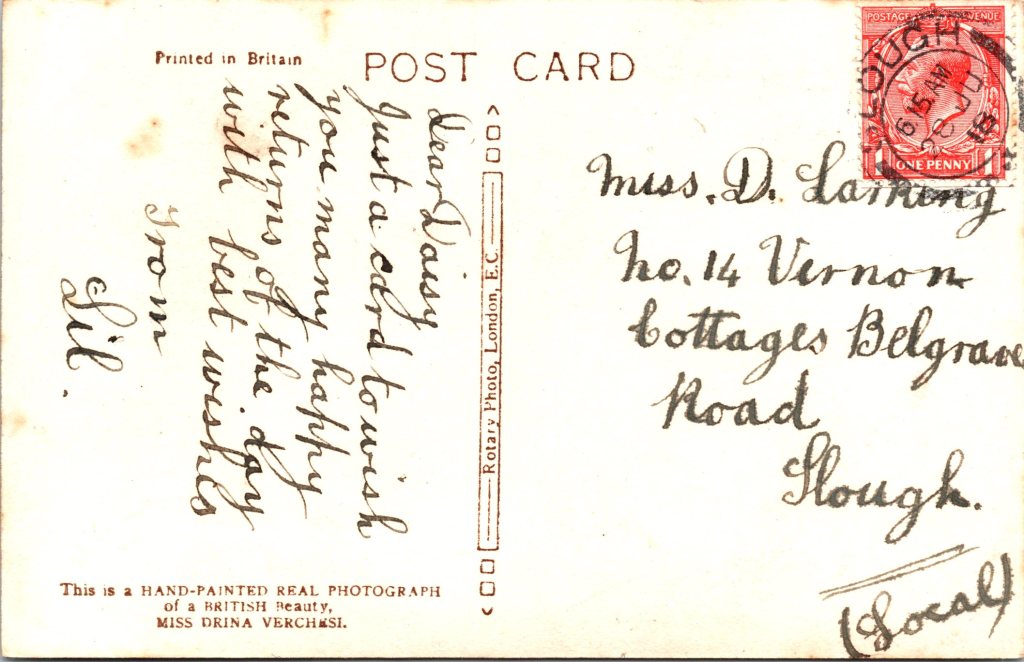 Printed in Britain
POST CARD
Dear Daisy
Just a card to wish
you many happy
returns of the day
with best wishes
From
Lil.
Rotary Photo, London, E.C.
This is a HAND-PAINTED REAL PHOTOGRAPH
of a BRITISH Beauty,
MISS DRINA VERCHESI.
POSTAGE REVENUE
1 ONE PENNY 1
SLOUGH
6 15 AM
28 JU
18
Miss. D. Larking
No. 14 Vernon
Cottages Belgrave
Road
Slough.
(Local)